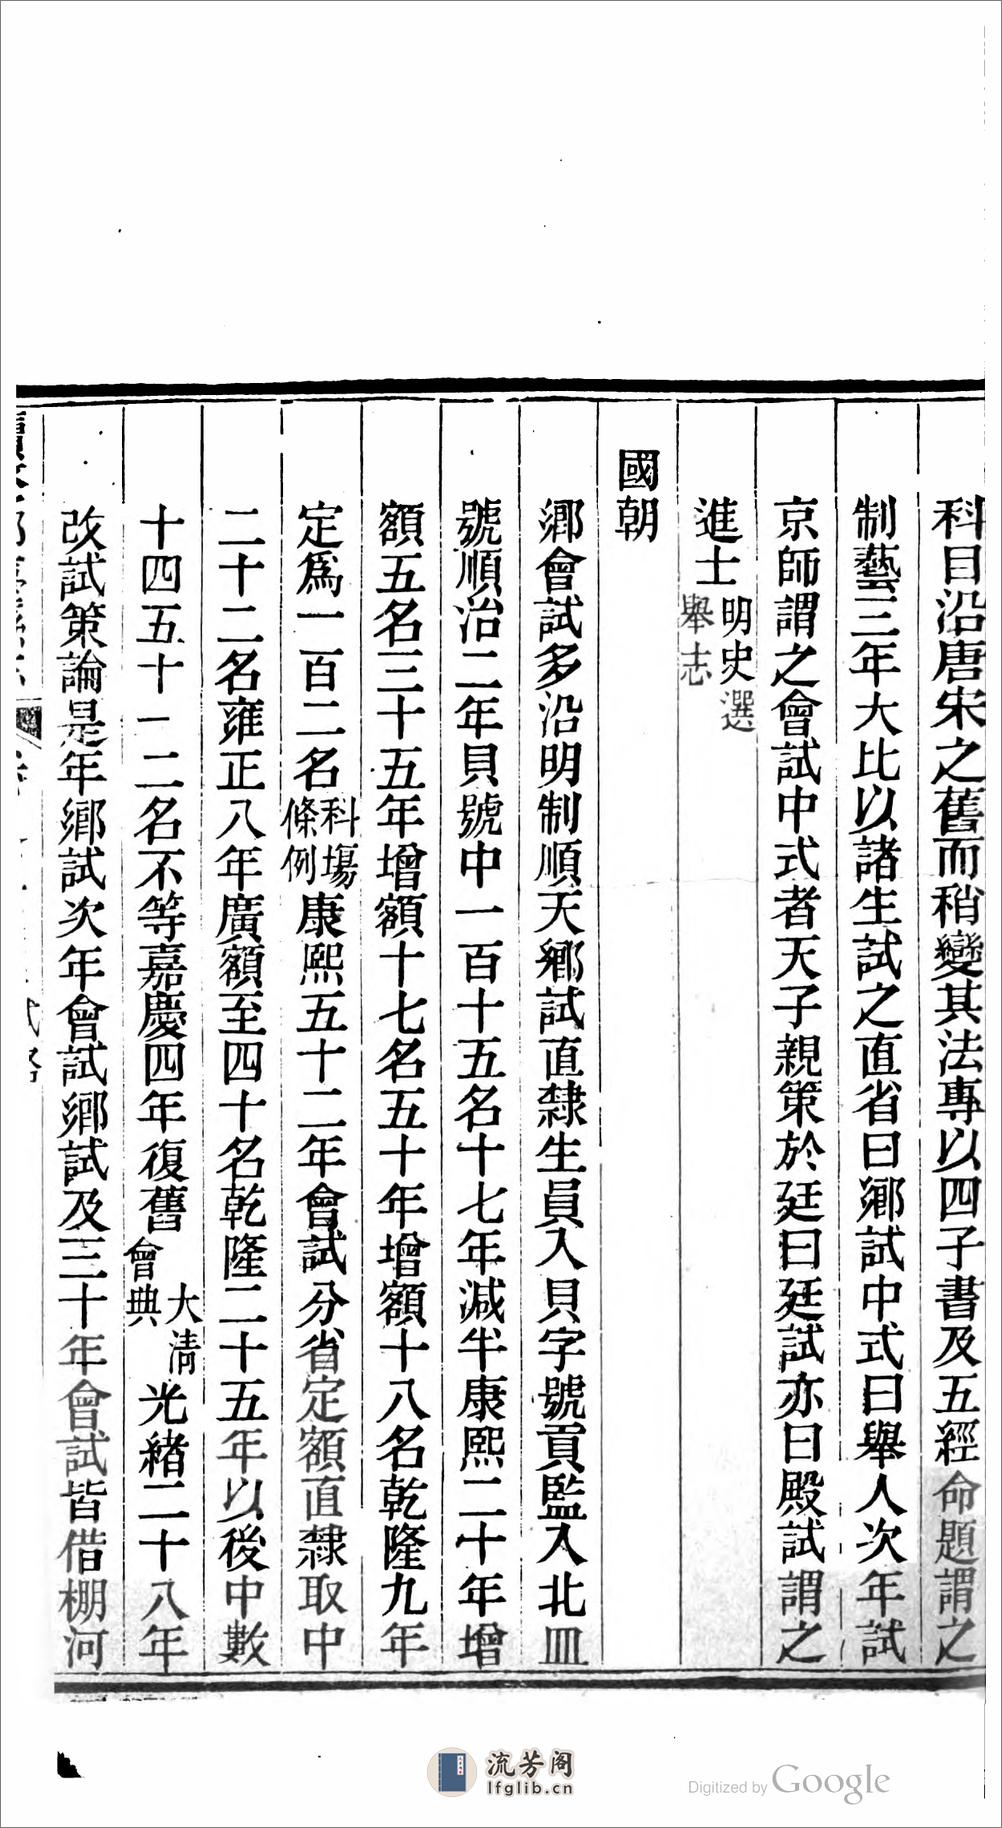 科目沿唐宋之舊而稍變其法專以四子書及五經命題謂之
制藝三年大比以諸生試之直省曰鄉試中式曰舉人次年試
京師謂之會試中式者天子親策於廷曰廷試亦曰殿試謂之
進士明史選舉志
國朝
鄉會試多沿明制順天鄉試直隸生員入貝字號貢監入北皿
號順治二年貝號中一百十五名十七年減半康熙二十年增
額五名三十五年增額十七名五十年增額十八名乾隆九年
定爲一百二名科場條例康熙五十二年會試分省定額直隸取中
二十二名雍正八年廣額至四十名乾隆二十五年以後中數
十四五十一二名不等嘉慶四年復舊大清會典光緒二十八年
改試策論是年鄉試次年會試鄉試及三十年會試皆借棚河
流芳阁
lfglib.cn
Digitized by Google